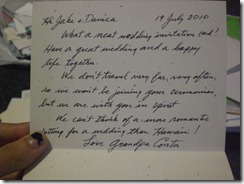 Hi Jake & Danica 19 July 2010
What a neat wedding invitation card!
Have a great wedding and a happy
life together.
We don't travel very far, very often,
so we won't be joining your ceremonies,
but we are with you in spirit
We can't think of a more romantic
setting for a wedding than Hawaii!
Love Grandpa